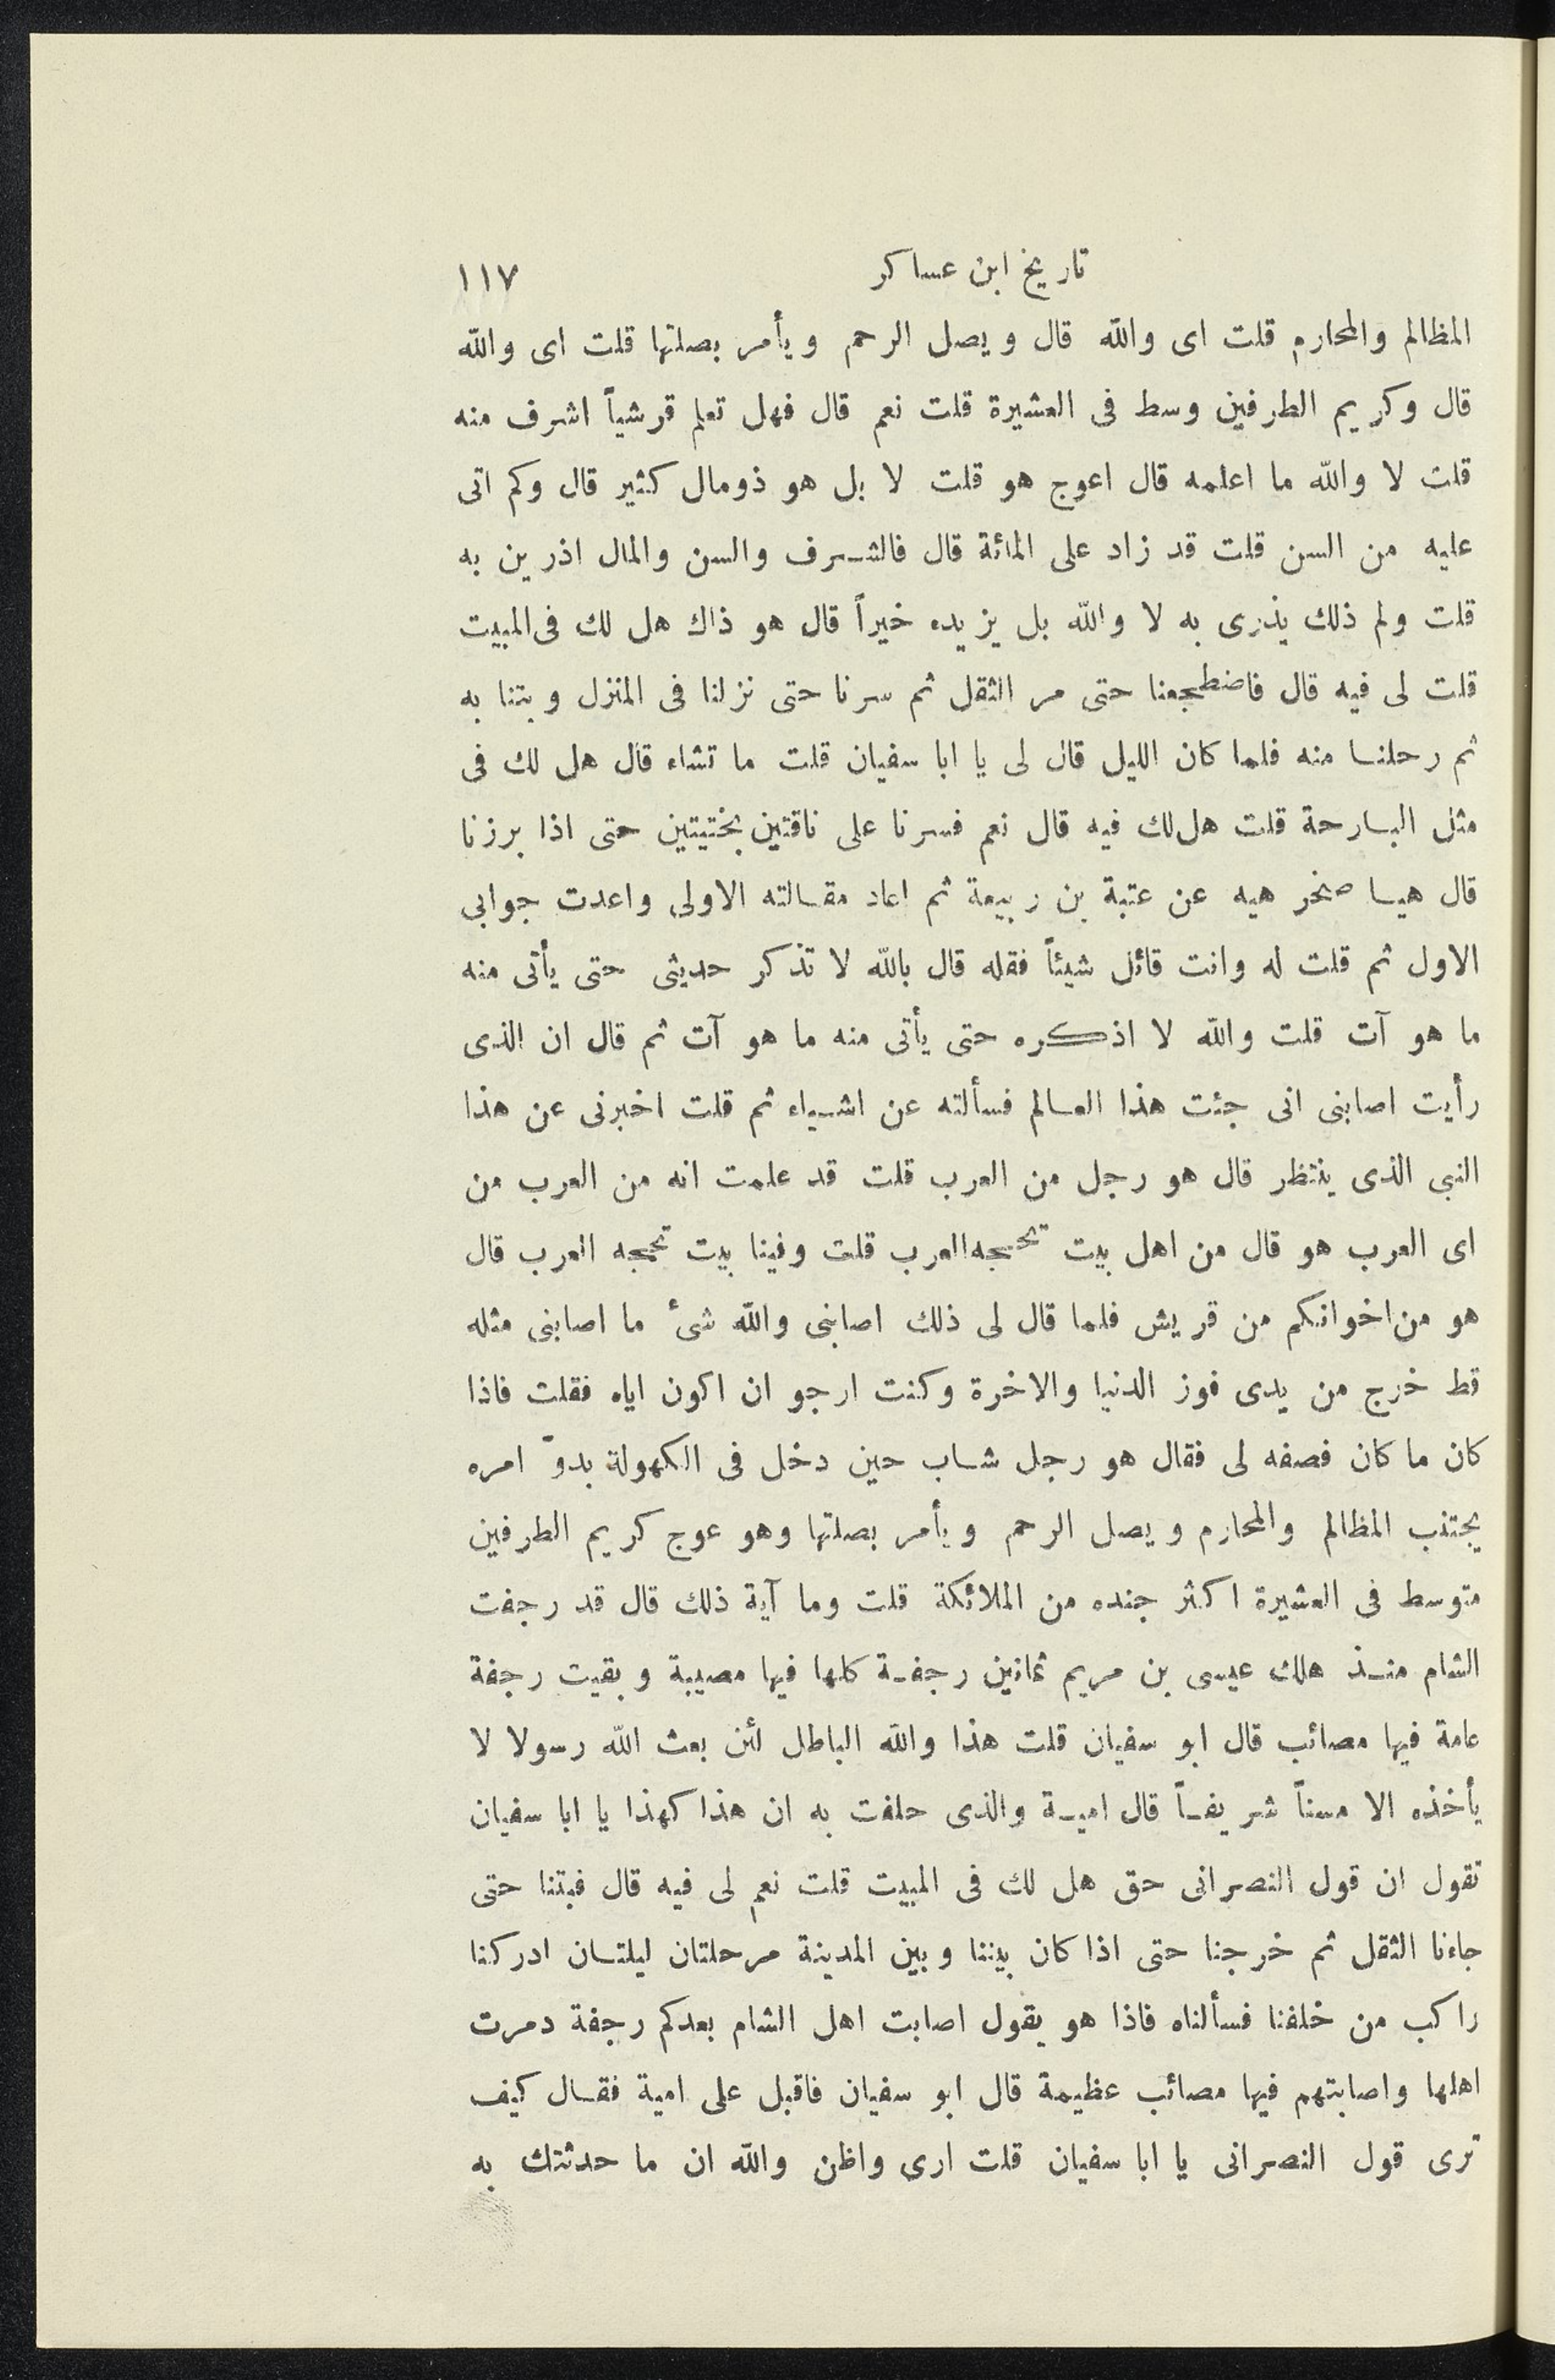 تاريخ ابن عساكر ١١٧
المظالم والمحارم قلت اى والله قال ويصل الرحم ويأمر بصلتها قلت اى والله
قال وكريم الطرفين وسط فى العشيرة قلت نعم قال فهل تعلم قرشياً اشرف منه
قلت لا والله ما اعلمه قال اعوج هو قلت لا بل هو ذومال كثير قال وكم اتى
عليه من السن قلت قد زاد على المائة قال فالشرف والسن والمال اذرين به
قلت ولم ذلك يذرى به لا والله بل يزيده خيراً قال هو ذاك هل لك فى المبيت
قلت لى فيه قال فاضطجعنا حتى مر الثقل ثم سرنا حتى نزلنا فى المنزل وبتنا به
ثم رحلنا منه فلما كان الليل قال لى يا ابا سفيان قلت ما تشاء قال هل لك فى
مثل البارحة قلت هل لك فيه قال نعم فسرنا على ناقتين بختيتين حتى اذا برزنا
قال هيا صخر هيه عن عتبة بن ربيعة ثم اعاد مقالته الاولى واعدت جوابى
الاول ثم قلت له وانت قائل شيئاً فقله قال بالله لا تذكر حديثى حتى يأتى منه
ما هو آت قلت والله لا اذكره حتى يأتى منه ما هو آت ثم قال ان الذى
رأيت اصابنى انى جئت هذا العالم فسألته عن اشياء ثم قلت اخبرنى عن هذا
النبى الذى ينتظر قال هو رجل من العرب قلت قد علمت انه من العرب من
اى العرب هو قال من اهل بيت تحججه العرب قلت وفينا بيت تحججه العرب قال
هو من اخوانكم من قريش فلما قال لى ذلك اصابنى والله شئ ما اصابنى مثله
قط خرج من يدى فوز الدنيا والاخرة وكنت ارجو ان اكون اياه فقلت فاذا
كان ما كان فصفه لى فقال هو رجل شاب حين دخل فى الكهولة بدوّ امره
يجتنب المظالم والمحارم ويصل الرحم ويأمر بصلتها وهو عوج كريم الطرفين
متوسط فى العشيرة اكثر جنده من الملائكة قلت وما آية ذلك قال قد رجفت
الشام منذ هلك عيسى بن مريم ثمانين رجفة كلها فيها مصيبة وبقيت رجفة
عامة فيها مصائب قال ابو سفيان قلت هذا والله الباطل لئن بعث الله رسولا لا
يأخذه الا مسناً شريفاً قال امية والذى حلفت به ان هذا كهذا يا ابا سفيان
تقول ان قول النصرانى حق هل لك فى المبيت قلت نعم لى فيه قال فبتنا حتى
جاءنا الثقل ثم خرجنا حتى اذا كان بيننا وبين المدينة مرحلتان ليلتان ادركنا
راكب من خلفنا فسألناه فاذا هو يقول اصابت اهل الشام بعدكم رجفة دمرت
اهلها واصابتهم فيها مصائب عظيمة قال ابو سفيان فاقبل على امية فقال كيف
ترى قول النصرانى يا ابا سفيان قلت ارى واظن والله ان ما حدثتك به